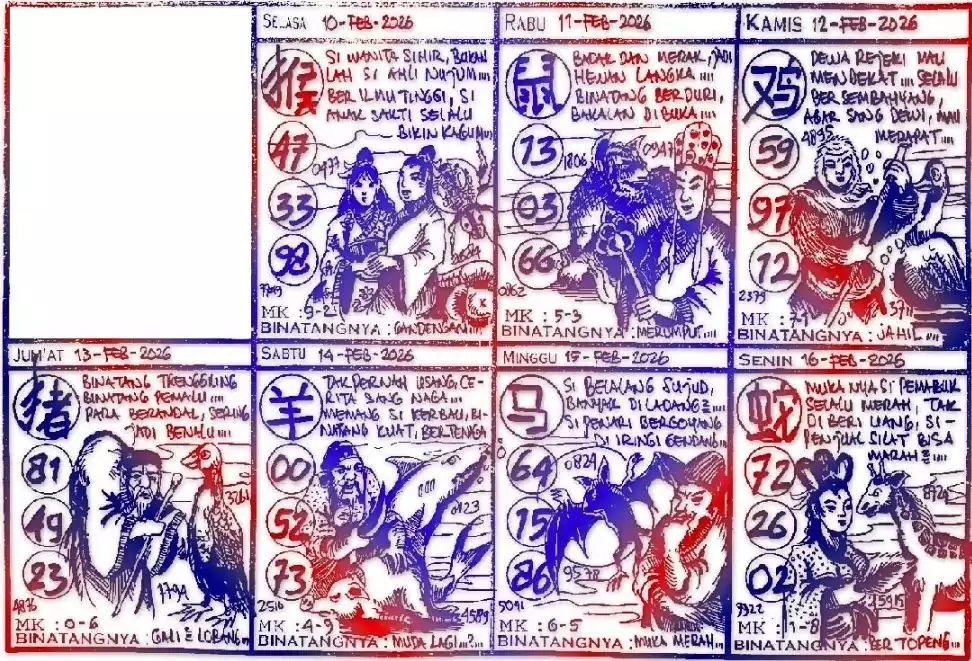 SELASA 10-FEB-2026
猴
SI WANITA SIHIR, BUKAN
LAH SI AHLI NUJUM,,,,
BER ILMU TINGGI, SI
ANAK SAKTI SELALU
BIKIN KAGUM,,,
47
0477
33
98
MK : 9-2
BINATANGNYA : GANDENGAN,,,,
RABU 11-FEB-2026
鼠
BADAK DAN MERAK, JADI
HEWAN LANGKA,,,,
BINATANG BERDURI,
BAKALAN DIBUKA,,,,
13
1806
0947
03
66
0162
MK : 5-3
BINATANGNYA : MERUMPUT,,,,
KAMIS 12-FEB-2026
鸡
DEWA REJEKI MAU
MENDEKAT,,,, SELALU
BERSEMBAHYANG,
AGAR SANG DEWI, MAU
MERAPAT,,,,
4895
59
97
12
2379
MK : 7-1
BINATANGNYA : JAHIL,,,,
JUM'AT 13-FEB-2026
猪
BINATANG TRENGGILING
BINATANG PEMALU,,,,
PARA BERANDAL, SERING
JADI BENALU,,,,
81
3261
49
23
1794
4876
MK : 0-6
BINATANGNYA : GALI = LOBANG,,,,
SABTU 14-FEB-2026
羊
TAK PERNAH USANG, CE-
RITA SANG NAGA,,,,
MEMANG SI KERBAU, BI-
NATANG KUAT, BERTENGA
00
800
0123
52
73
2516
4589
MK : 4-9
BINATANGNYA : MUDA LAGI,,,?,,,
MINGGU 15-FEB-2026
马
SI BELALANG SUJUD,
BANYAK DI LADANG =,,,,
SI PENARI BERGOYANG
DI IRINGI GENDANG,,,,
64
0824
15
86
9578
5091
MK : 6-5
BINATANGNYA : MUKA MERAH,,,,
SENIN 16-FEB-2026
蛇
MUKA NYA SI PEMABUK
SELALU MERAH, TAK
DI BERI UANG, SI-
PENJUAL SILAT BISA
MARAH =,,,,
72
26
02
15915
9922
MK : 1-8
BINATANGNYA : BER TOPENG,,,,